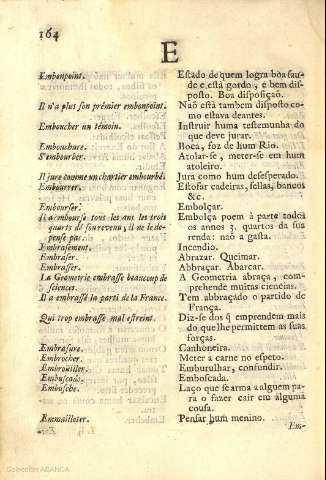 164
E
Embonpoint. Estado de quem logra boa sau-
de e está gordo, e bem dis-
posto. Boa disposiçaõ.
Il n'a plus son prémier embonpoint. Naõ está tambem disposto co-
mo estava deantes.
Emboucher un témoin. Instruir huma testemunha do
que deve jurar.
Embouchure. Boca, foz de hum Rio.
S'embourber. Atolar-se, meter-se em hum
atoleiro.
Il jure comme un chartier embourbé. Jura como hum desesperado.
Embourrer. Estofar cadeiras, sellas, bancos
&c.
Embourser. Embolçar.
Il embourse tous les ans les trois Embolça poem à parte todos
quarts de son revenu; il ne le de- os annos 3. quartos da sua
pense pas. renda: naõ a gasta.
Embrasement. Incendio.
Embraser. Abrazar. Queimar.
Embrasser. Abbraçar. Abarcar.
La Geometrie embrasse beaucoup de A Geometria abraça, com-
sciences. prehende muitas ciencias.
Il a embrassé la parti de la France. Tem abbraçado o partido de
França.
Qui trop embrasse mal estreint. Diz-se dos q̃ emprendem mais
do que lhe permittem as suas
forças.
Embrasure. Canhoneira.
Embrocher. Meter a carne no espeto.
Embroüiller. Emburulhar, confundir.
Embuscade. Emboscada.
Embusche. Laço que se arma a alguem pa-
ra o fazer cair em alguma
cousa.
Emmailloter. Pensar hum menino.
Em-
Colección ABANCA